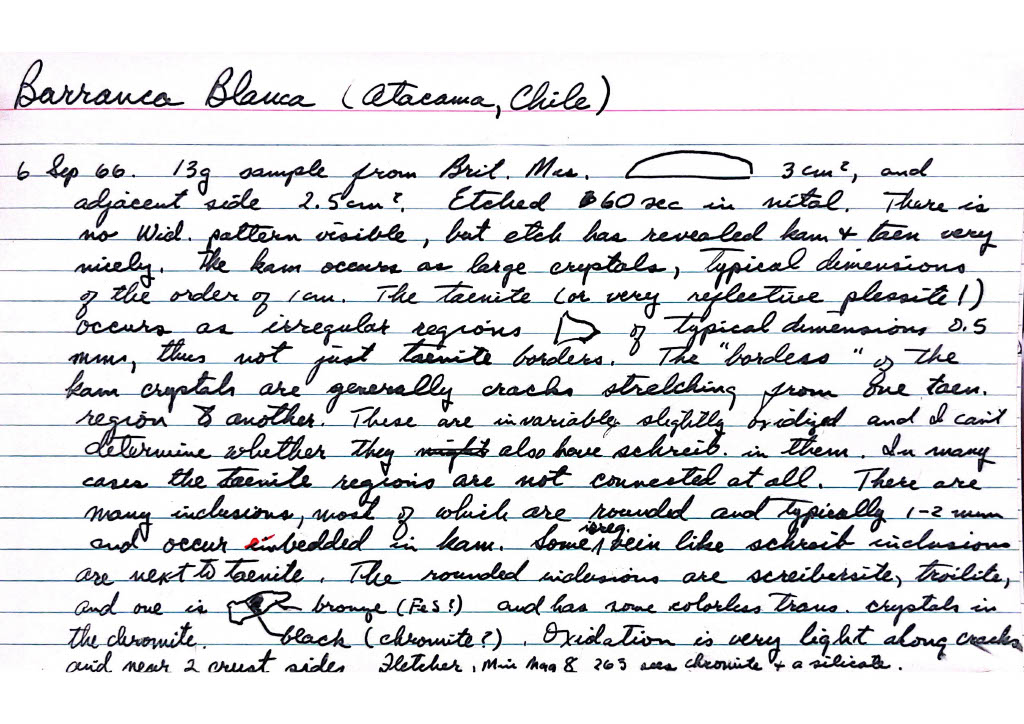 Barranca Blanca (Atacama, Chile)
6 Sep 66. 13g sample from Brit. Mus. 3 cm², and
adjacent side 2.5 cm². Etched 60 sec in nital. There is
no Wid. pattern visible, but etch has revealed kam & taen very
nicely. The kam occurs as large crystals, typical dimensions
of the order of 1 cm. The taenite (or very reflective plessite!)
occurs as irregular regions of typical dimensions 0.5
mms, thus not just taenite borders. The "bordess" of the
kam crystals are generally cracks stretching from one taen.
region to another. These are invariably slightly oxidized and I can't
determine whether they might also have schreib. in them. In many
cases the taenite regions are not connected at all. There are
many inclusions, most of which are rounded and typically 1-2 mm
and occur embedded in kam. Some irreg. vein like schreib inclusions
are next to taenite. The rounded inclusions are screibersite, troilite,
and one is bronze (FeS?) and has some colorless trans. crystals in
the chromite. black (chromite?). Oxidation is very light along cracks
and near 2 crust sides. Fletcher, Min Mag 8 263 sees chromite & a silicate.